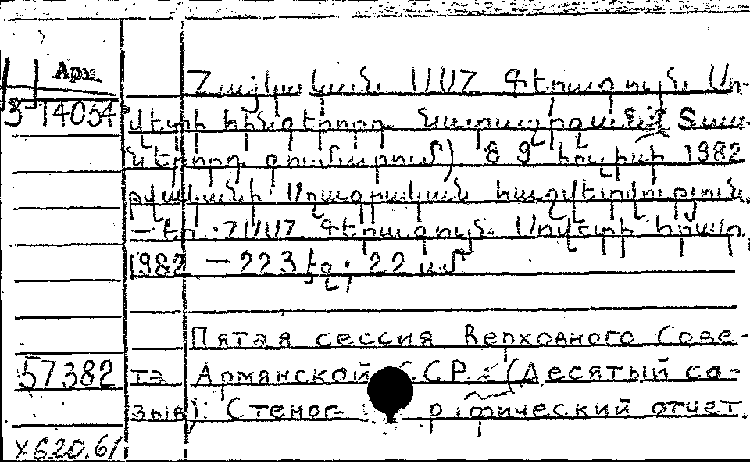 Арм
3 14054
Հայկական ՍՍՀ Գերագույն Սո-
վետի հինգերորդ նստաշրջան Տաս-
ներորդ գումարում). 8 9 հուլիսի 1982
թվականի Սղագրական հաշվետվություն
– Եր.: ՀՍՍՀ Գերագույն Սովետի հրատ.
1982 – 223 էջ; 22 սմ
Пятая сессия Верховного Сове-
57382 та Армянской ССР. (Десятый со-
зыв): Стеног рафический отчет.
X620.61